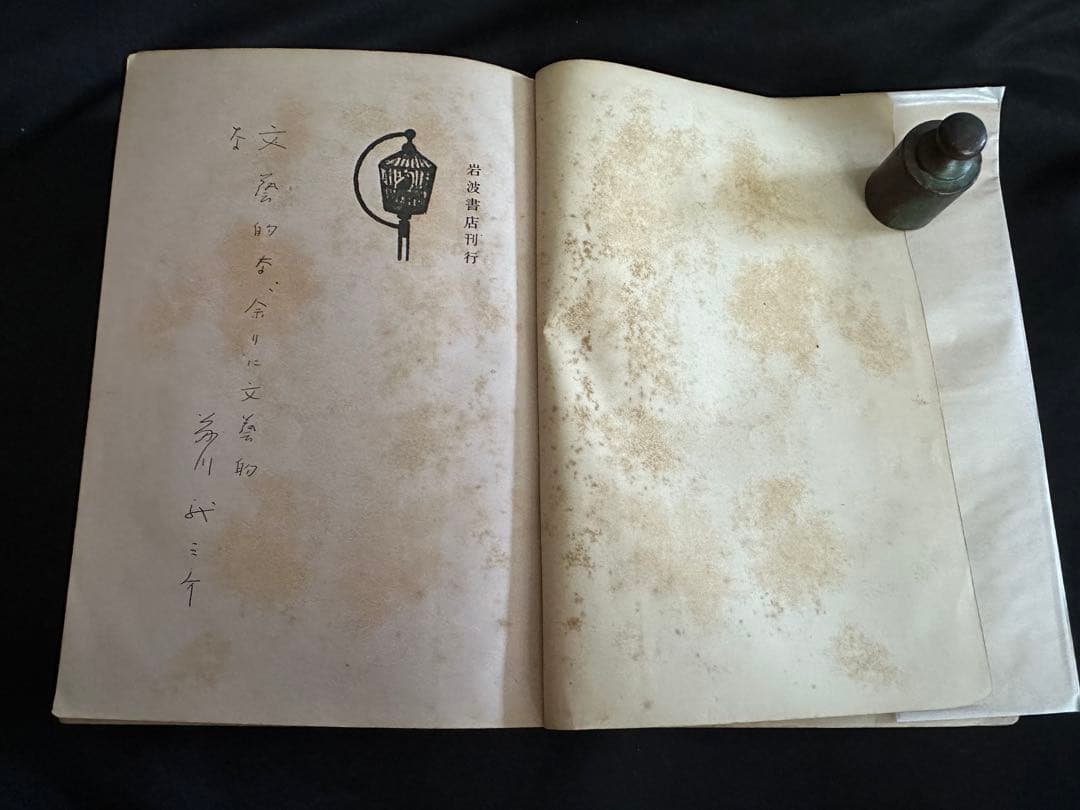 岩波書店刊行
文藝的な、余りに文藝的
な
芥川龍之介